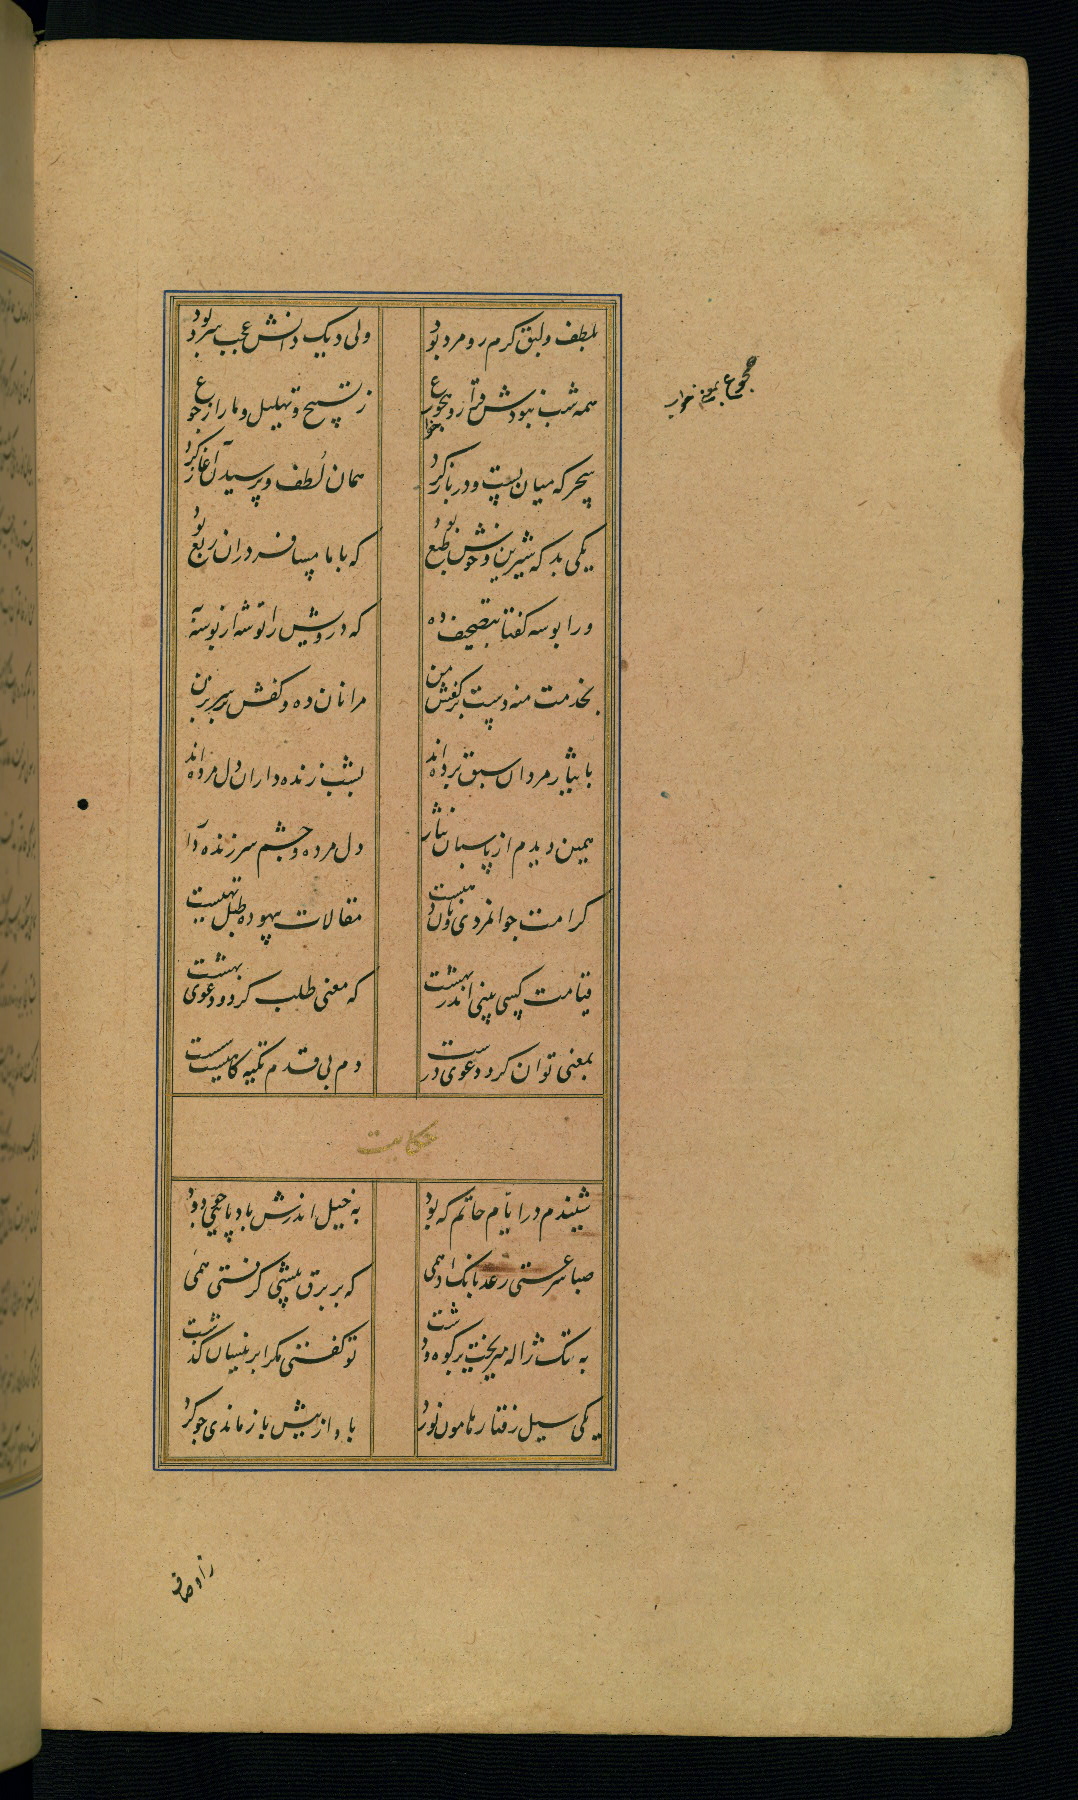 بلطف و لبق کرم رو مرد بود ولی دیک دانش عجب سرد بود
همه شب نبودش قرار و هجوع ز تسبیح و تهلیل و ما را ز جوع
خواب
هجوع بمعنی خواب
سحرکه میان بست و در باز کرد همان لُطف و پرسیدن آغاز کرد
یکی بد که شیرین و خوش طبع بود که با ما مسافر دران ربع بود
ورا بوسه کفتا بتصحیف ده که درویش را توشه از بوسه به
بخدمت منه دست بر کفش من مرا نان ده و کفش بر سر بزن
بایثار مردان سبق برده اند بشب زنده داران دل مرده اند
همین دیدم از پاسبان تتار دل مرده و چشم سر زنده دا
کرامت جوانمردی و نان دهیست مقالات بیهوده طبل تهیست
قیامت کسی بینی اندر بهشت که معنی طلب کرد و دعوی بهشت
بمعنی توان کرد دعوی درست دم بی قدم تکیه کاهیست سست
حکایت
شنیدم در ایّام حاتم که بود به خیل اندرش باد پایی چو دود
صبا سرعتی رعد بانک ادهمی که بر برق پیشی کرفتی همی
به تک ژاله میریخت بر کوه و دشت تو کفتی مکر ابر نیسان کذشت
یکی سیل رفتار هامون نورد باد از پیش باز ماندی چو کرد
ز اوصاف